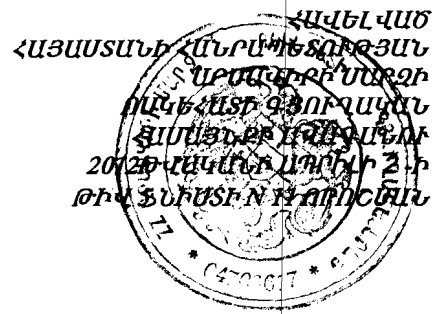 ՀԱՎԵԼՎԱԾ
ՀԱՅԱՍՏԱՆԻ ՀԱՆՐԱՊԵՏՈՒԹՅԱՆ
ԱՐՄԱՎԻՐԻ ՄԱՐԶԻ
ԲԱԿԵՀԱՏԻ ԳՅՈՒՂԱԿԱՆ
ՀԱՄԱՅՆՔԻ ԱՎԱԳԱՆՈՒ
2012ԹՎԱԿԱՆԻ ԱՊՐԻԼԻ 2 -Ի
ԹԻՎ 5 ՆԻՍՏԻ N 11 ՈՐՈՇՄԱՆ